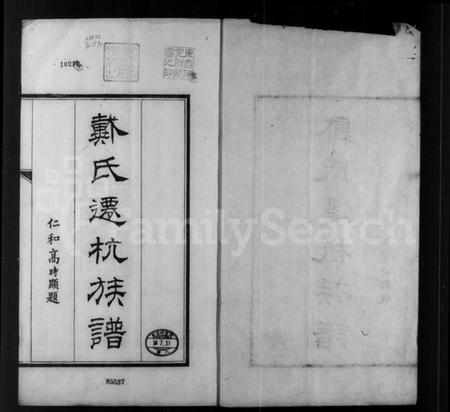 戴氏遷杭族譜
仁和高時顯題
85537
FamilySearch